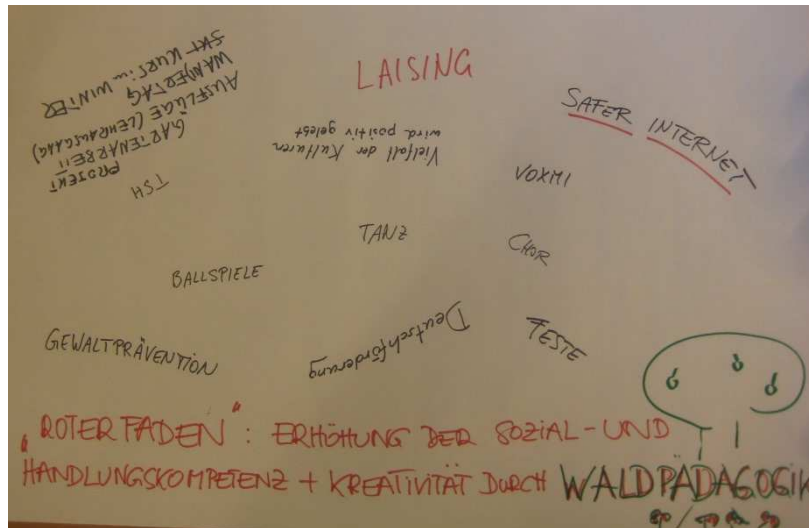 LAISING
SKI KURS im WINTER
WANDERTAG
AUSFLÜGE (LEHRAUSGANG)
GARTENARBEIT
PROJEKT
TSH
Vielfalt der Kulturen
wird positiv gelebt
SAFER INTERNET
VOXMI
TANZ
CHOR
BALLSPIELE
GEWALTPRÄVENTION
Deutschförderung
FESTE
„ROTER FADEN": ERHÖHUNG DER SOZIAL-UND
HANDLUNGSKOMPETENZ + KREATIVITÄT DURCH WALDPÄDAGOGIK